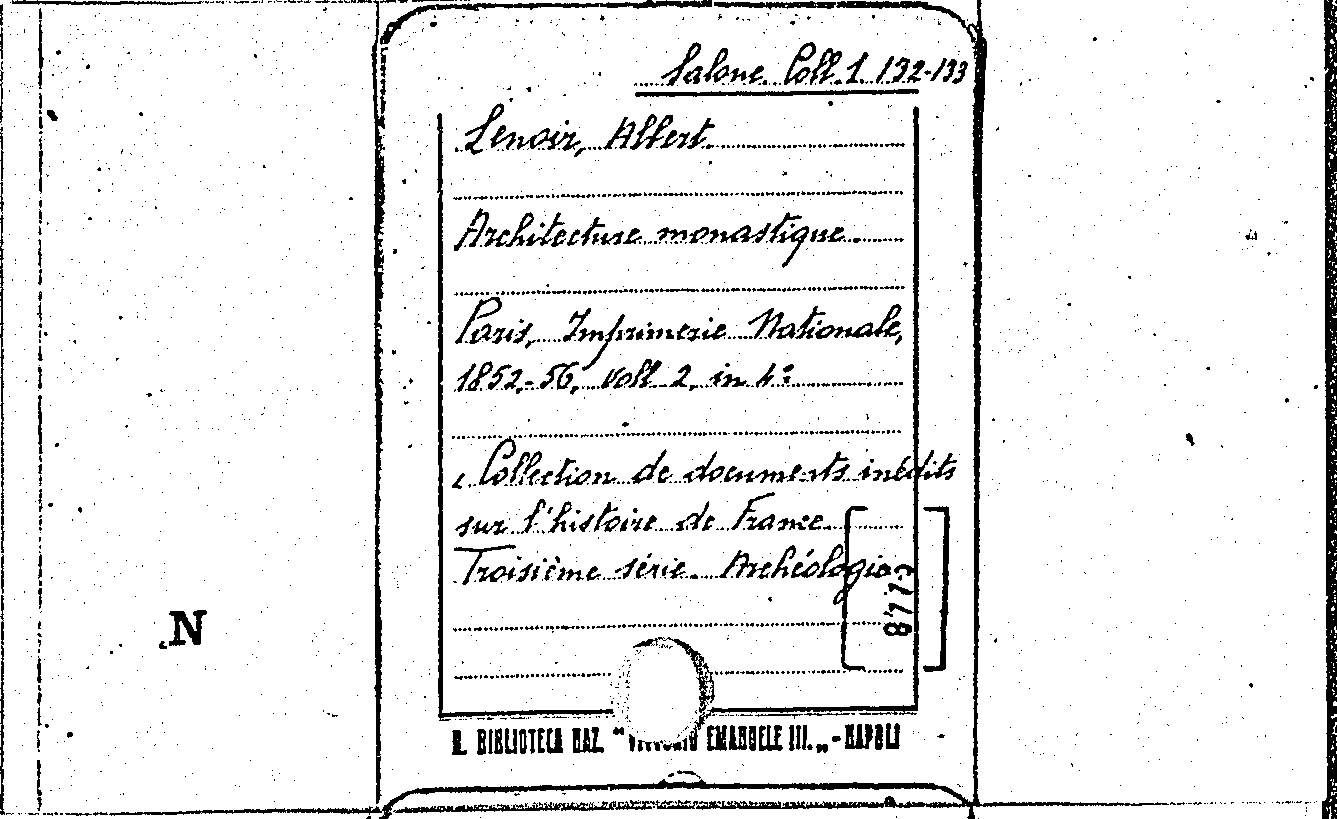 Salone Coll. 1 132-133
Lenoir, Albert.
Architecture monastique.
Paris, Imprimerie Nationale,
1852-56, voll 2, in 4º
, Collection de documents inédits
sur l'histoire de France.
Troisième série. Archéologie
N
R. BIBLIOTECA NAZ. "VITTORIO EMANUELE III." - NAPOLI